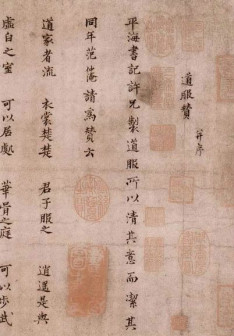 道服贊 并序
平海書記許兄製道服所以清其意而潔其
同年范仲淹請為贊云
道家者流 衣裳楚楚 君子服之 逍遙是與
虛白之室 可以居處 華胥之庭 可以步武